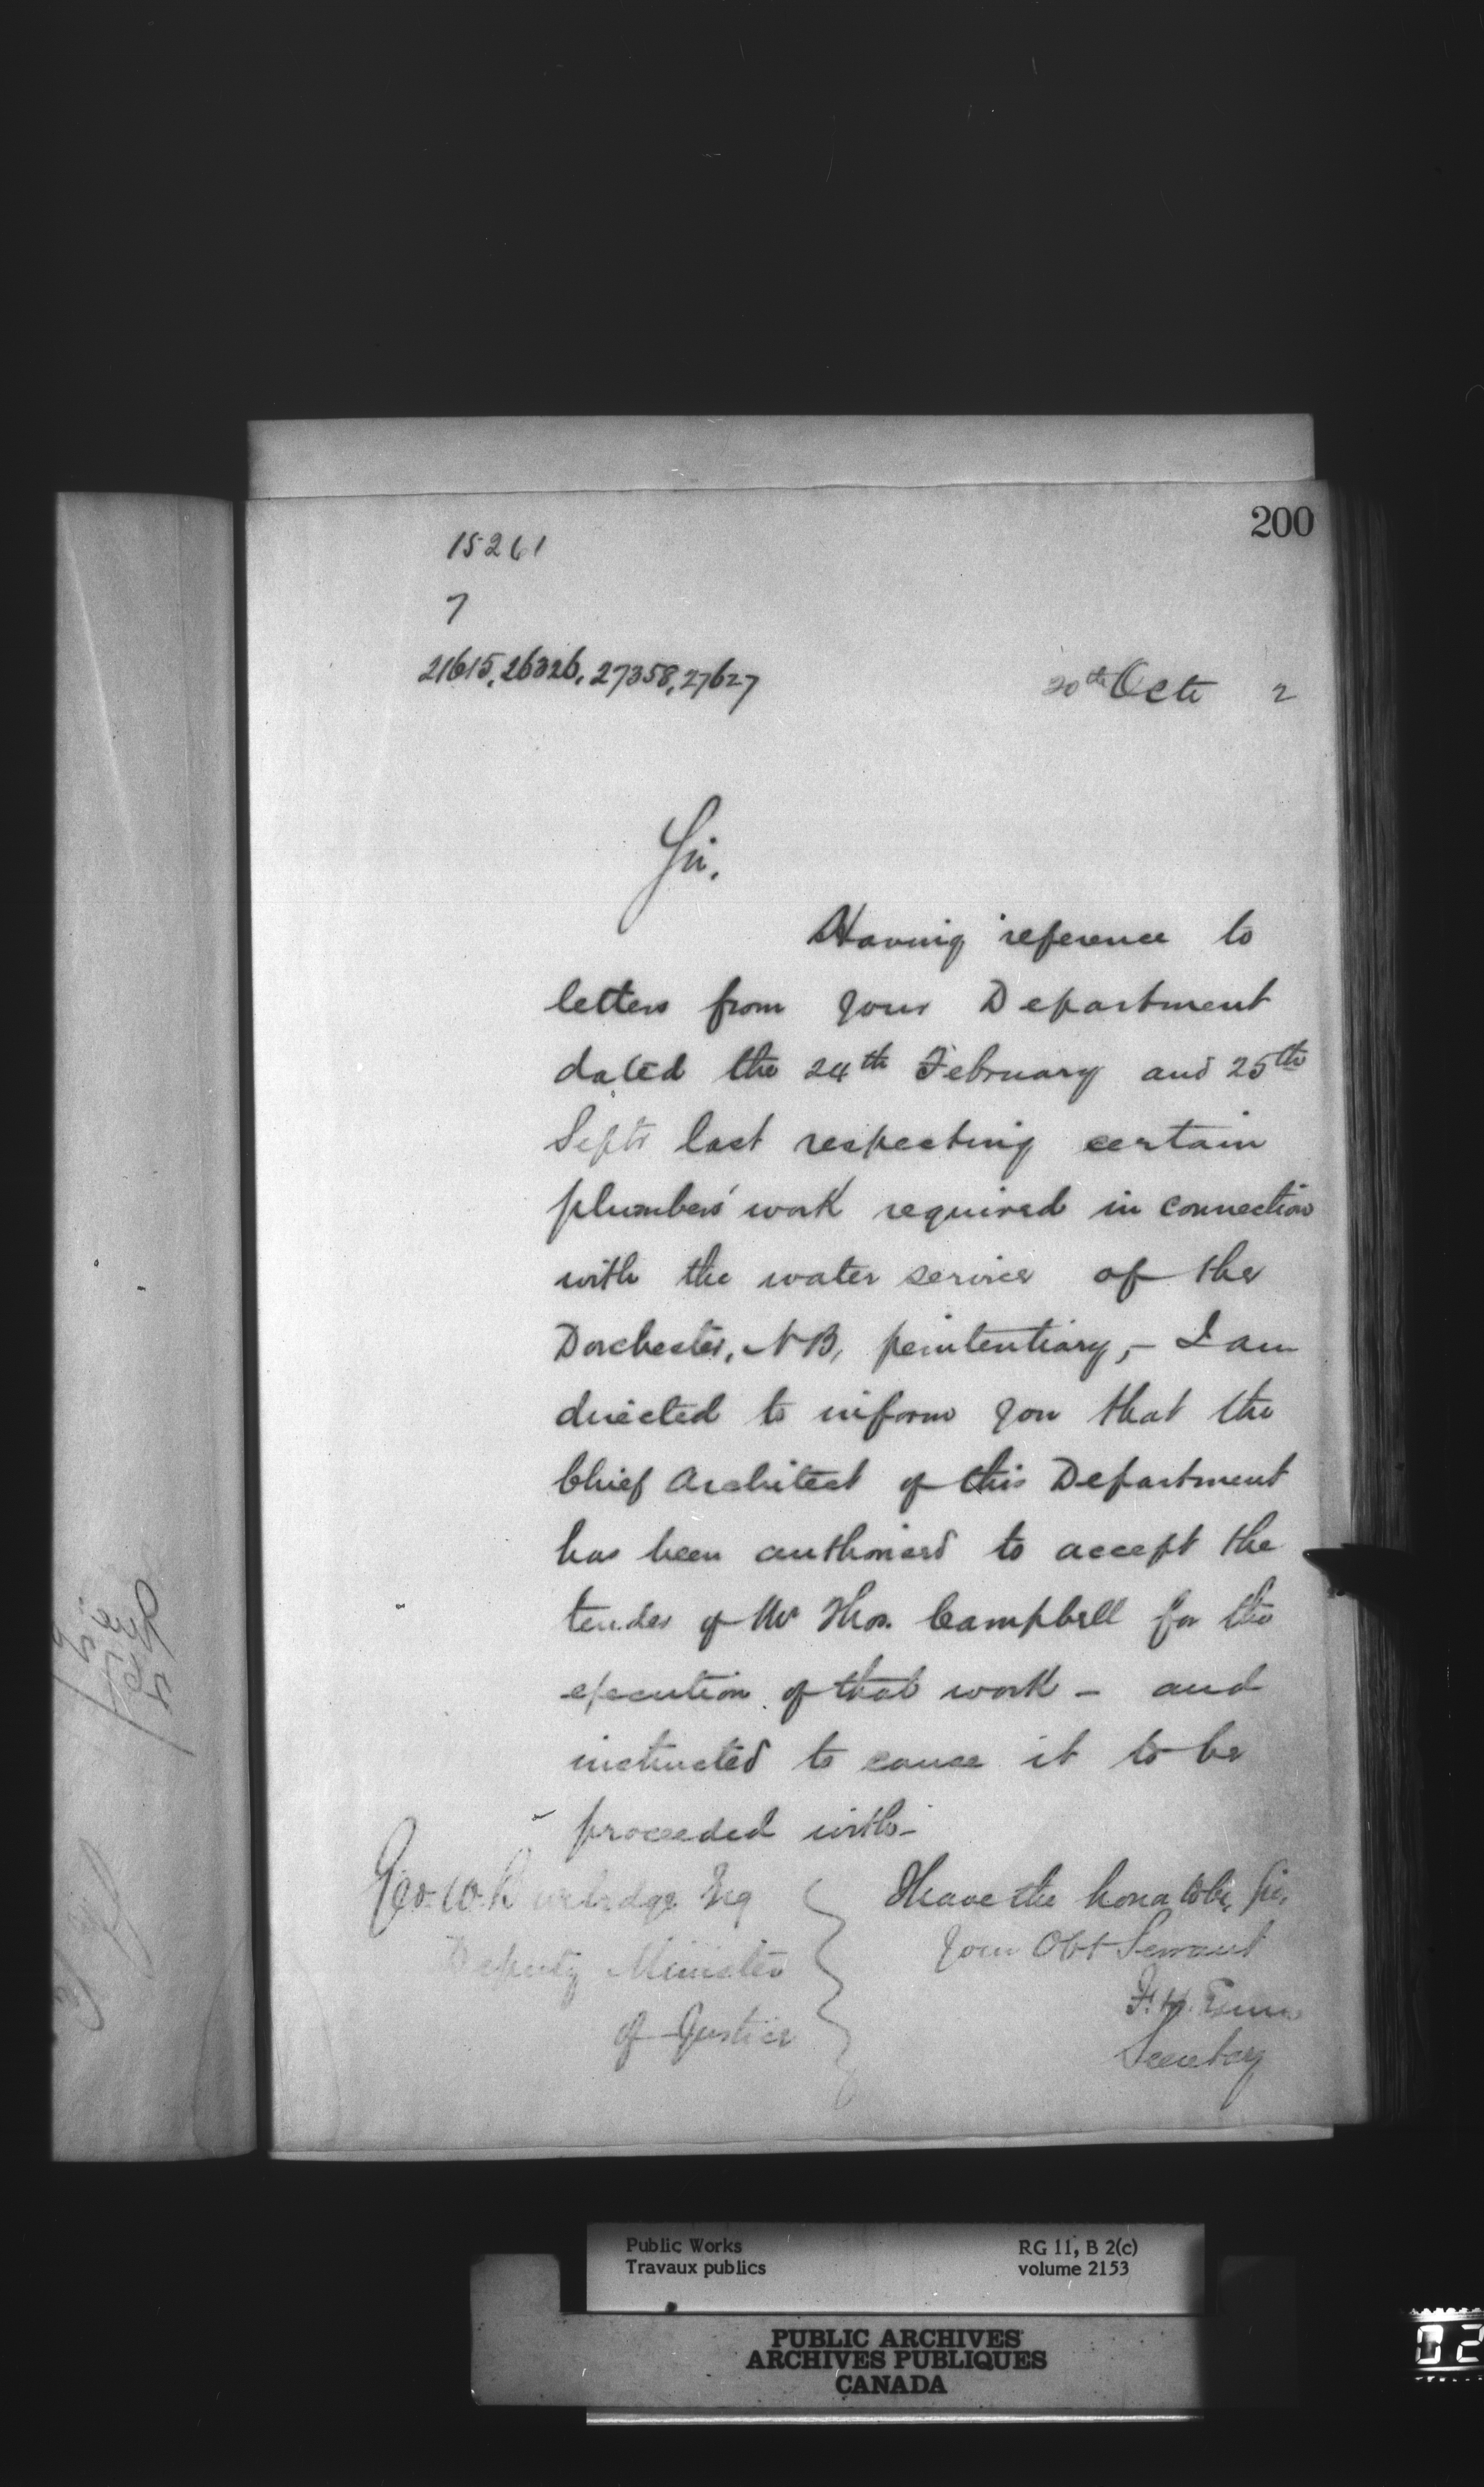 200
15261
7
21615, 26326, 27358, 27627
20th Octr 2
Sir,
Having reference to
letters from your Department
dated the 24th February and 25th
Septr last respecting certain
plumbers' work required in connection
with the water service of the
Dorchester, N B, penitentiary, - I am
directed to inform you that the
Chief Architect of this Department
has been authorised to accept the
tender of Mr Thos. Campbell for the
execution of that work - and
instructed to cause it to be
proceeded with -
I have the honor to be, Sir,
Your Obt Servant
F. H.
Secretary
Geo. W. Burbidge Esq
Deputy Minister
of Justice
Public Works
Travaux publics
RG 11, B 2(c)
volume 2153
PUBLIC ARCHIVES
ARCHIVES PUBLIQUES
CANADA
02